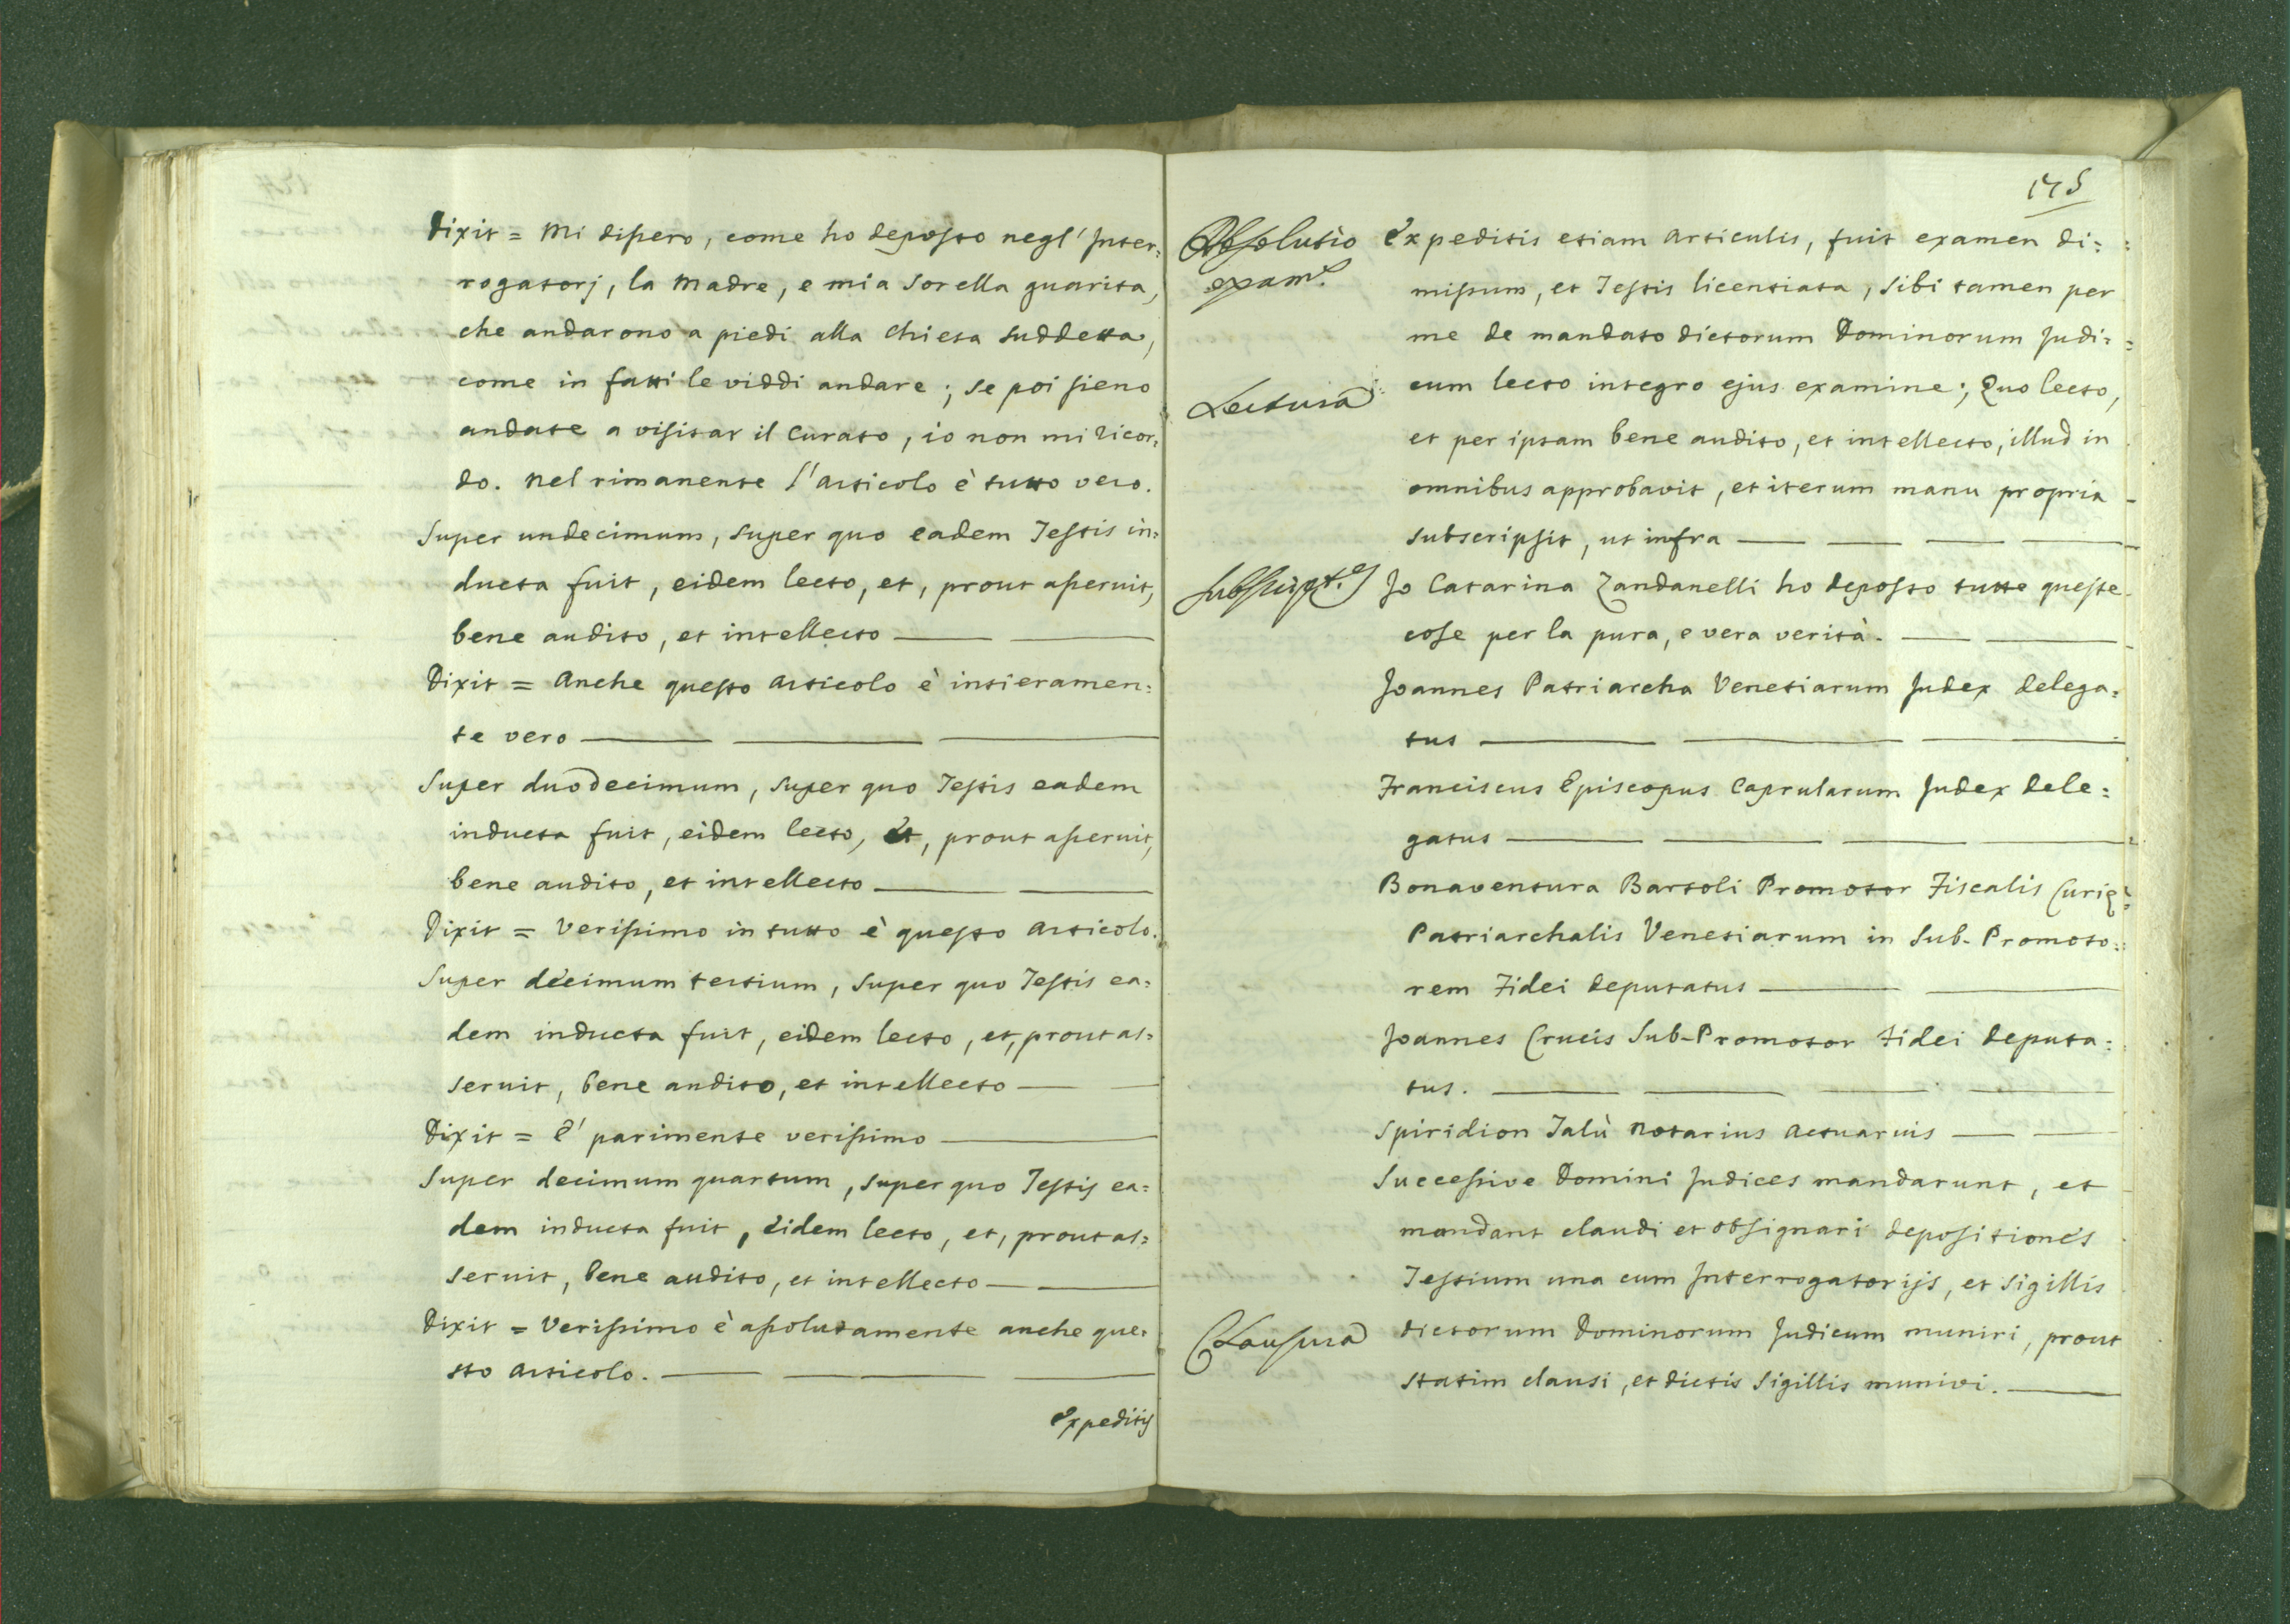 Dixit = Mi dissero, come ho deposto negl' Inter:
rogatorj, la Madre, e mia Sorella guarita,
che andarono a piedi alla Chiesa suddetta,
come in fatti le viddi andare; se poi sieno
andate a visitar il Curato, io non mi ricor:
do. Nel rimanente l'Articolo è tutto vero.
Super undecimum, super quo eadem Testis in:
ducta fuit, eidem lecto, et, prout asseruit,
bene audito, et intellecto
Dixit = Anche questo Articolo è intieramen:
te vero
Super duodecimum, super quo Testis eadem
inducta fuit, eidem lecto, et, prout asseruit,
bene audito, et intellecto
Dixit = Verissimo in tutto è questo Articolo.
Super decimum tertium, super quo Testis ea:
dem inducta fuit, eidem lecto, et, prout as:
seruit, bene audito, et intellecto
Dixit = E' parimente verissimo
Super decimum quartum, super quo Testis ea:
dem inducta fuit, eidem lecto, et, prout as:
seruit, bene audito, et intellecto
Dixit = Verissimo è assolutamente anche que:
sto Articolo.
Expeditis
175
Absolutio
exam.s
Expeditis etiam Articulis, fuit examen di:
missum, et Testis licentiata, sibi tamen per
me de mandato dictorum Dominorum Judi:
Lectura
cum lecto integro ejus examine; Quo lecto,
et per ipsam bene audito, et intellecto, illud in
omnibus approbavit, et iterum manu propria
subscripsit, ut infra
Subscript.s
Io Catarina Zandanelli ho deposto tutte queste
cose per la pura, e vera verità.
Joannes Patriarcha Venetiarum Judex delega:
tus
Franciscus Episcopus Caprularum Judex dele:
gatus
Bonaventura Bartoli Promotor Fiscalis Curię
Patriarchalis Venetiarum in Sub-Promoto:
rem Fidei deputatus
Joannes Crucis Sub-Promotor Fidei deputa:
tus.
Spiridion Talù Notarius Actuarius
Successive Domini Judices mandarunt, et
mandant claudi et obsignari depositiones
Testium una cum Interrogatorijs, et Sigillis
Clausura
dictorum Dominorum Judicum muniri, prout
statim clausi, et dictis Sigillis munivi.